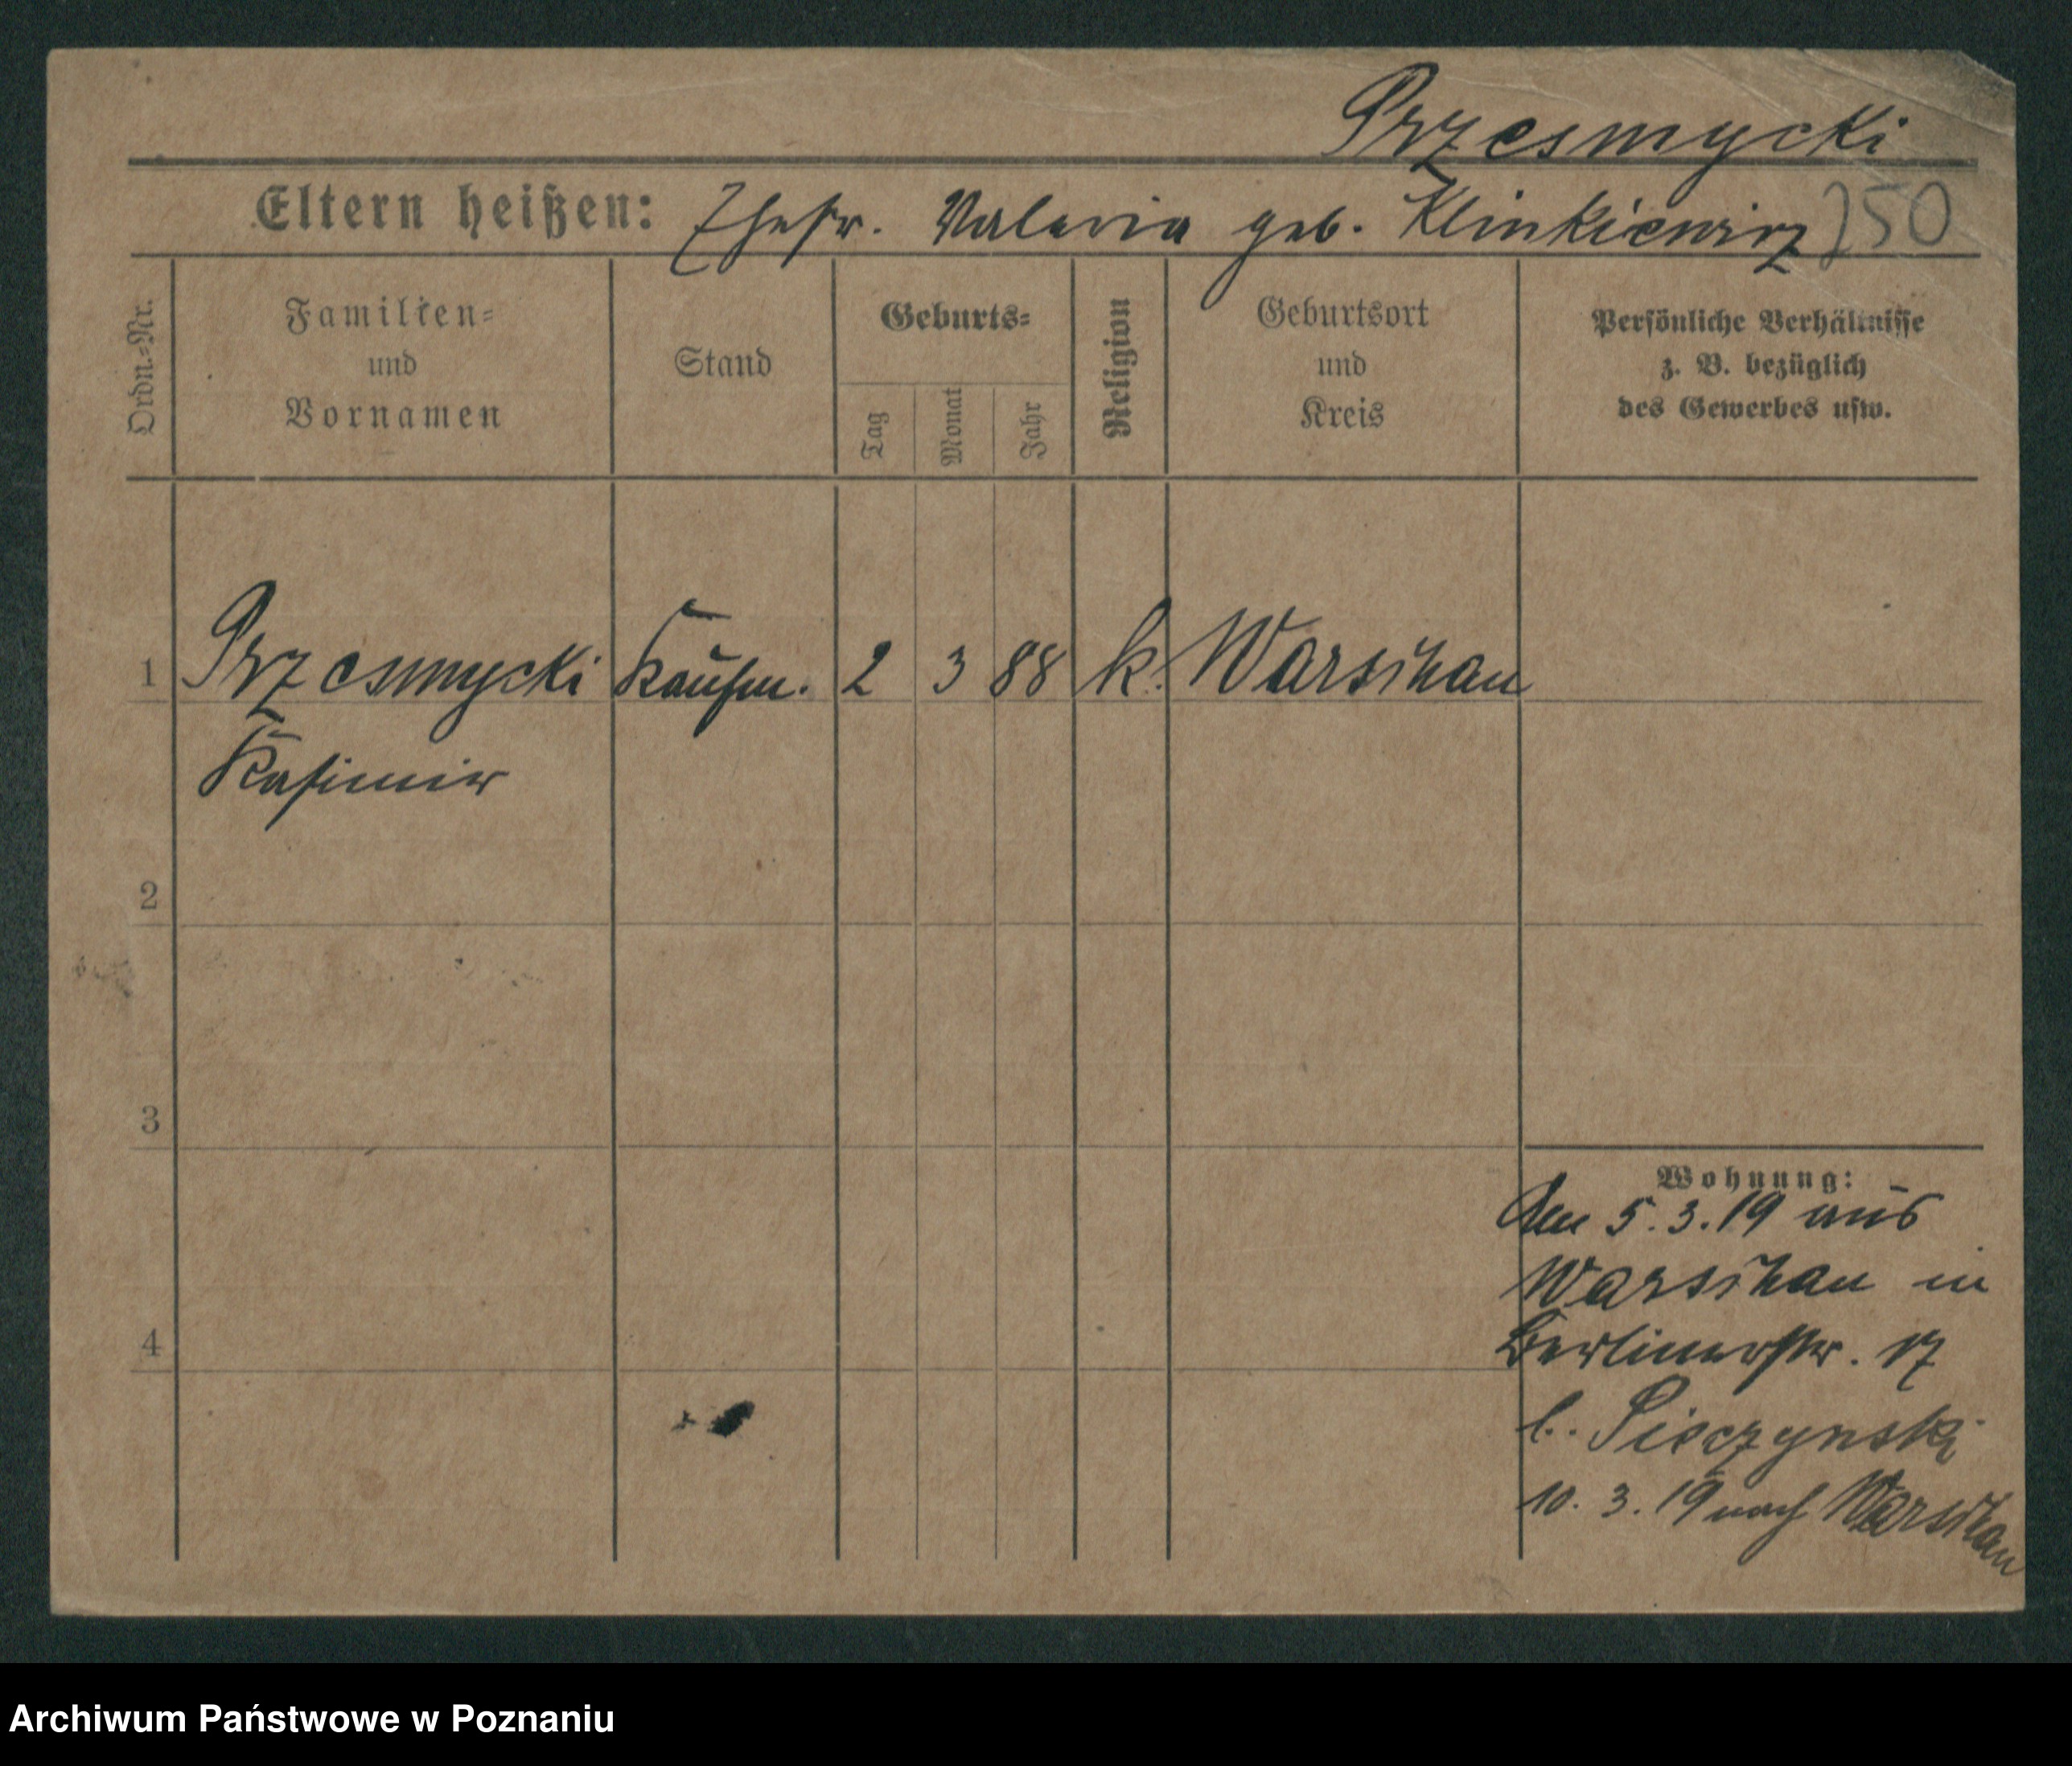 Przesmycki
Eltern heißen: Ehefr. Valeria geb. Klinkiewicz 250
Ordn.-Nr.
Familien- und Vornamen
Stand
Geburts-
Tag
Monat
Jahr
Religion
Geburtsort und Kreis
Persönliche Verhältnisse
z. B. bezüglich
des Gewerbes usw.
1 Przesmycki Kaufm. 2 3 88 k. Warschau
Kasimir
2
3
4
Wohnung:
Am 5.3.19 aus
Warschau in
Berlinerstr. 17
b. Pieczynski
10. 3. 19 nach Warschau
Archiwum Państwowe w Poznaniu